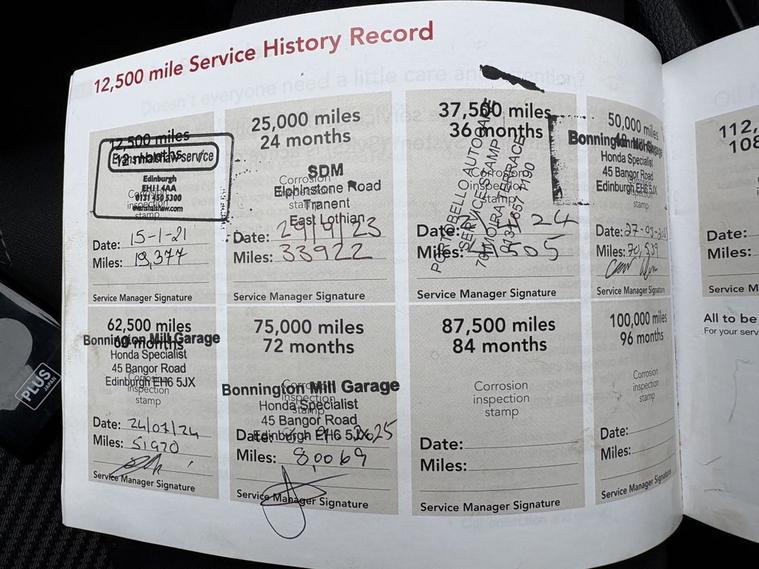 12,500 mile Service History Record
12,500 miles
12 months
Eastern Holland service
Edinburgh
EH11 4AA
0131 450 5300
Corrosion
inspection
stamp
Date: 15-1-21
Miles: 19,377
Service Manager Signature
25,000 miles
24 months
SDM
Elphinstone Road
Tranent
East Lothian
Corrosion
inspection
stamp
Date: 29/9/23
Miles: 33922
Service Manager Signature
37,500 miles
36 months
PORTOBELLO AUTOCARE
SERVICE STAMP
Corrosion
inspection
stamp
Date: 24
Miles: 505
Service Manager Signature
50,000 miles
Bonnington Mill Garage
Honda Specialist
45 Bangor Road
Edinburgh EH6 5JX
Date: 27-03-
Miles: 70,539
Service Manager Signature
62,500 miles
60 months
Bonnington Mill Garage
Honda Specialist
45 Bangor Road
Edinburgh EH6 5JX
Corrosion
inspection
stamp
Date: 26/07/24
Miles: 51970
Service Manager Signature
75,000 miles
72 months
Corrosion
inspection
stamp
Bonnington Mill Garage
Honda Specialist
45 Bangor Road
Edinburgh EH6 5JX
Date: 2025
Miles: 80069
Service Manager Signature
87,500 miles
84 months
Corrosion
inspection
stamp
Date:
Miles:
Service Manager Signature
100,000 miles
96 months
Corrosion
inspection
stamp
Date:
Miles:
Service Manager Signature
112,
108
Date:
Miles:
Service M
All to be
For your serv
PLUS